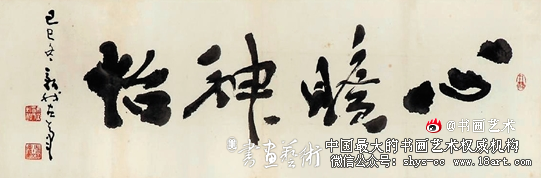 心曠神怡
己巳冬
@书画艺术
書畫藝術
中国最大的书画艺术权威机构
微信公众号: shys-cc www.18art.com